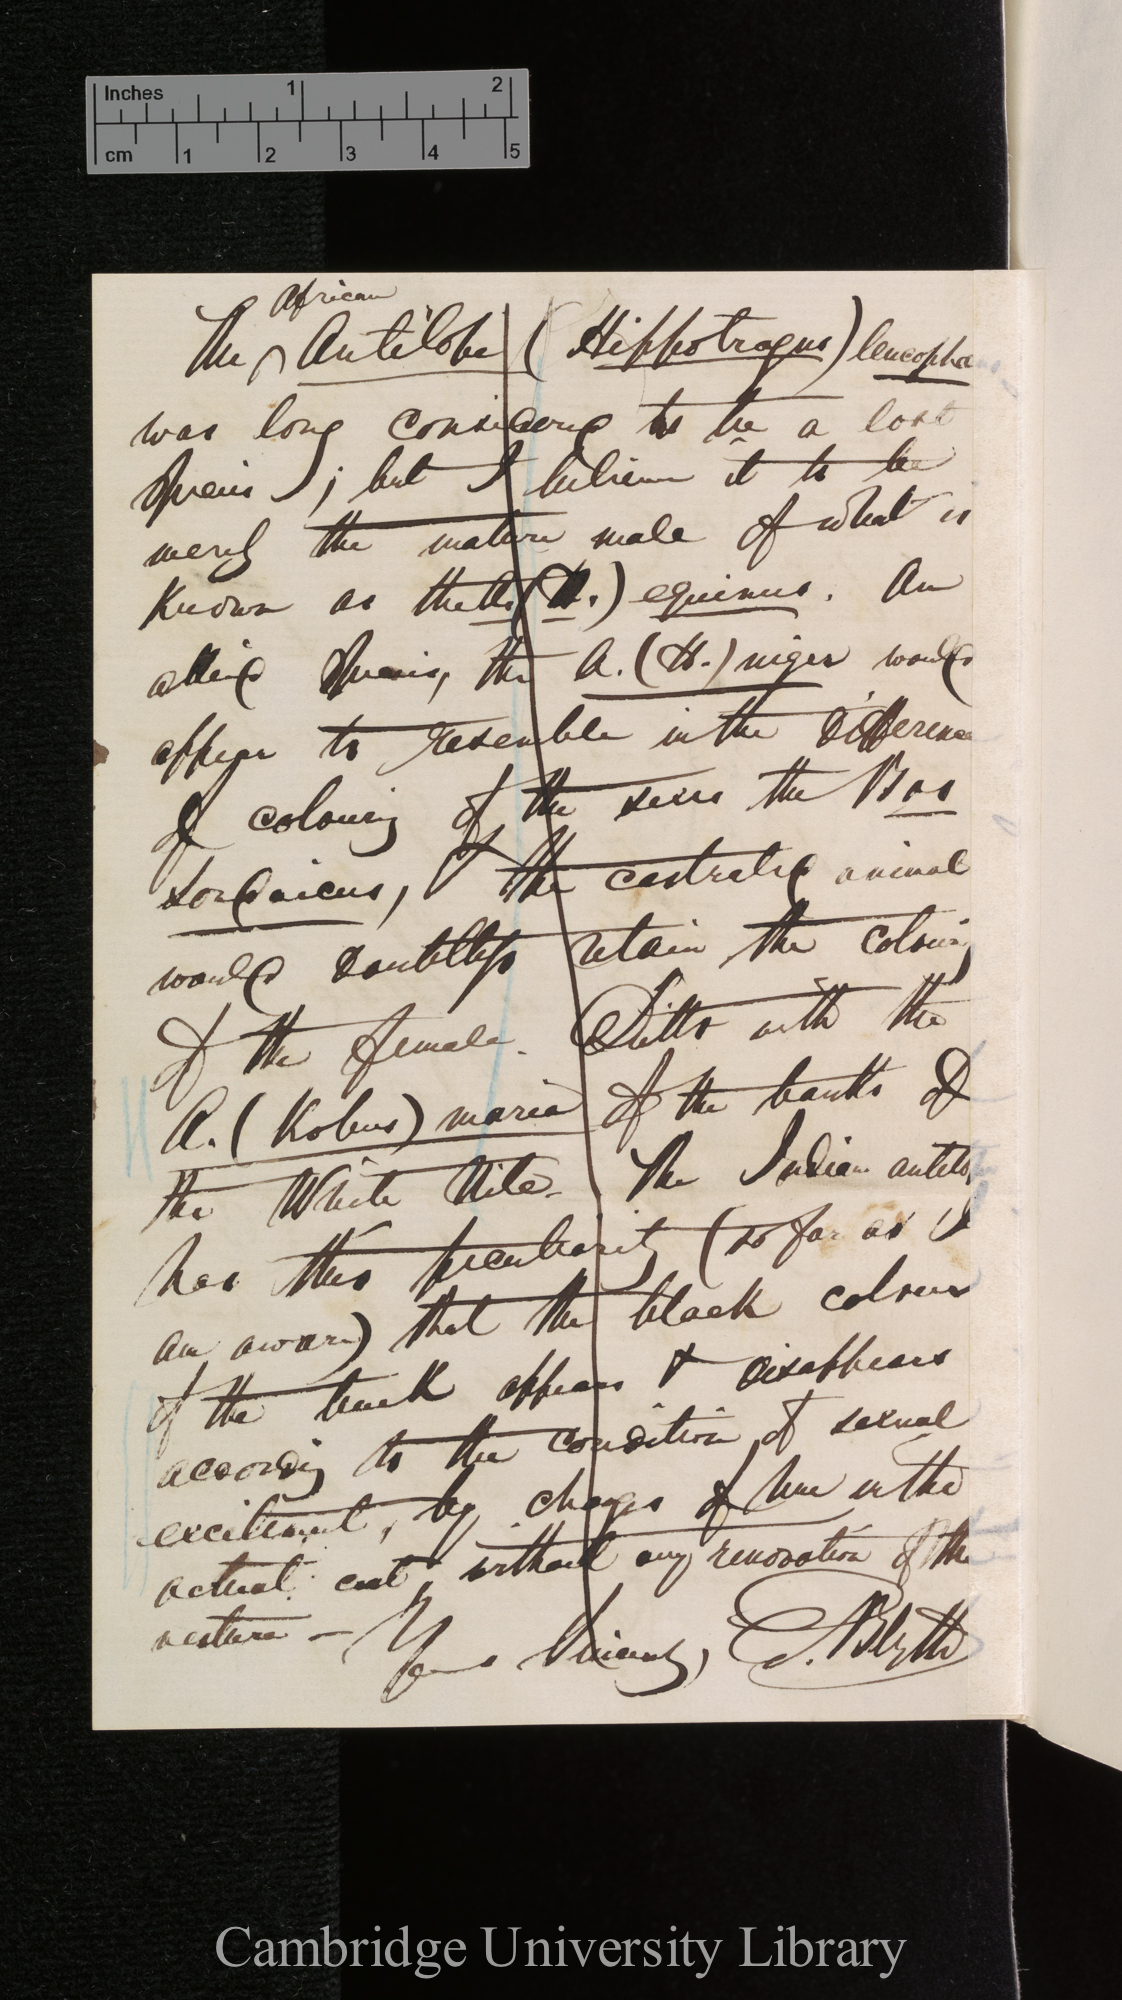 Inches 1 2
cm 1 2 3 4 5
African
The ^ Antilope (Hippotragus) leucophæ
was long considered to be a lost
species; but I believe it to be
merely the mature male of what is
known as the A. (H.) equinus. An
allied species, the A. (H.) niger would
appear to resemble in the difference
of colouring of the sexes the Bos
sondaicus, & the castrated animal
would doubtless retain the colouring
of the female. Ditto with the
A. (Kobus) maria of the banks of
the White Nile. The Indian antelo
has this peculiarity (so far as I
am aware) that the black colour
of the buck appears & disappears
according to the condition of sexual
excitement, by changes of hue in the
actual coat, without any renovation of the
vesture — Yours sincerely, E. Blyth
Cambridge University Library